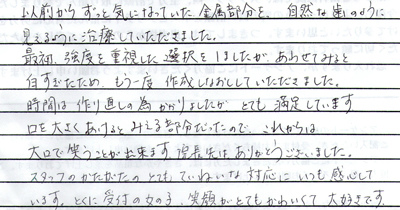 以前から ずっと気になっていた 金属部分を、自然な歯のように
見えるように治療していただきました。
最初、強度を重視した選択を しましたが、あわせてみると
白すぎたため、もう一度 作成しなおしていただきました。
時間は 作り直しの為 かかりましたが、とても 満足しています
口を大きくあけると みえる部分だったので、これからは
大口で笑うことが出来ます。院長先生ありがとうございました。
スタッフのかたがたの とても ていねいな 対応に いつも 感心して
います。とくに 受付の女の子、笑顔が とてもかわいくて 大好きです。